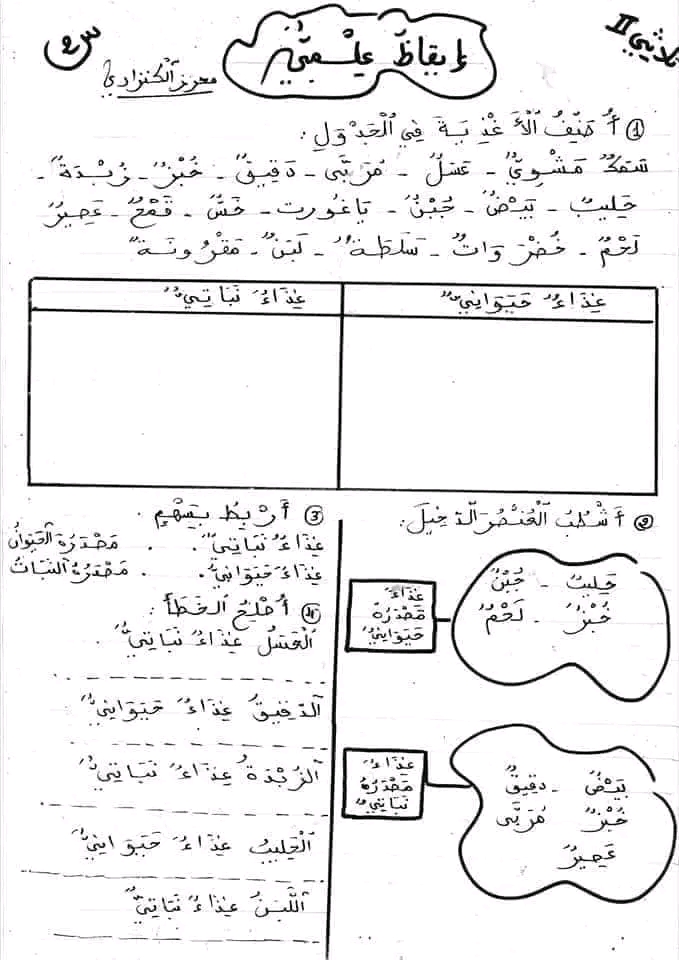 ثلاثي II
إيقاظ علمي
س2
محرز الكنزاري
① أُصَنِّفُ الْأَغْذِيَةَ فِي الْجَدْوَلِ :
سَمَكٌ مَشْوِيٌّ - عَسَلٌ - مُرَبَّى - دَقِيقٌ - خُبْزٌ - زُبْدَةٌ -
حَلِيبٌ - بَيْضٌ - جُبْنٌ - يَاغُورت - خَسٌّ - قَمْحٌ - عَصِيرٌ
لَحْمٌ - خُضْرَوَاتٌ - سَلَطَةٌ - لَبَنٌ - مَقْرُونَةٌ
غِذَاءٌ حَيَوَانِيٌّ
غِذَاءٌ نَبَاتِيٌّ
② أَشْطُبُ الْعُنْصُرَ الدَّخِيلَ :
حَلِيبٌ - جُبْنٌ
خُبْزٌ - لَحْمٌ
غِذَاءٌ
مَصْدَرُهُ
حَيَوَانِيٌّ
بَيْضٌ - دَقِيقٌ
خُبْزٌ مُرَبَّى
عَصِيرٌ
غِذَاءٌ
مَصْدَرُهُ
نَبَاتِيٌّ
③ أَرْبِطُ بِسَهْمٍ .
غِذَاءٌ نَبَاتِيٌّ . . مَصْدَرُهُ الْحَيَوَانُ
غِذَاءٌ حَيَوَانِيٌّ . . مَصْدَرُهُ النَّبَاتُ
④ أُصْلِحُ الْخَطَأَ :
الْعَسَلُ غِذَاءٌ نَبَاتِيٌّ .
الدَّقِيقُ غِذَاءٌ حَيَوَانِيٌّ
الزُّبْدَةُ غِذَاءٌ نَبَاتِيٌّ
الْحَلِيبُ غِذَاءٌ حَيَوَانِيٌّ
اللَّبَنُ غِذَاءٌ نَبَاتِيٌّ